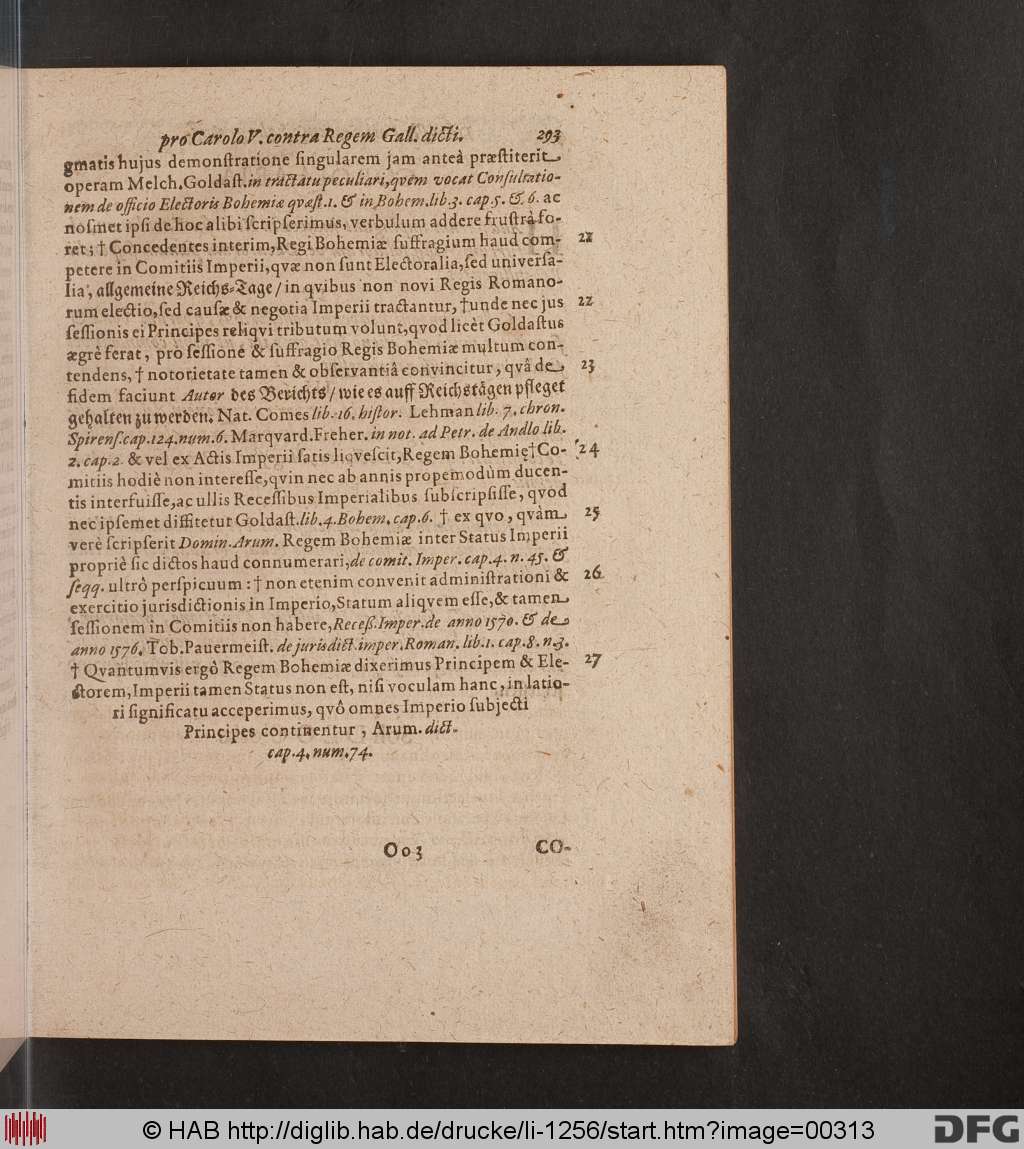 pro Carolo V. contra Regem Gall. dicti. 293
gmatis hujus demonſtratione ſingularem jam anteà præſtiterit
operam Melch. Goldaſt. in tractatu peculiari, qvem vocat Conſultatio-
nem de officio Electoris Bohemiæ qvæſt. 1. & in Bohem. lib. 3. cap. 5. & 6. ac
noſmet ipſi de hoc alibi ſcripſerimus, verbulum addere fruſtrà fo-
ret; † Concedentes interim, Regi Bohemiæ ſuffragium haud com- 21
petere in Comitiis Imperii, qvæ non ſunt Electoralia, ſed univerſa-
lia, allgemeine Reichs-Tage / in qvibus non novi Regis Romano-
rum electio, ſed cauſæ & negotia Imperii tractantur, † unde nec jus 22
ſeſſionis ei Principes reliqvi tributum volunt, qvod licèt Goldaſtus
ægrè ferat, pro ſeſſione & ſuffragio Regis Bohemiæ multum con-
tendens, † notorietate tamen & obſervantiâ convincitur, qvâ de 23
fidem faciunt Autor des Berichts / wie es auff Reichstågen pfleget
gehalten zu werden. Nat. Comes lib. 16. hiſtor. Lehman lib. 7. chron.
Spirenſ. cap. 124. num. 6. Marqvard. Freher. in not. ad Petr. de Andlo lib.
2. cap. 2. & vel ex Actis Imperii ſatis liqveſcit, Regem Bohemię † Co- 24
mitiis hodiè non intereſſe, qvin nec ab annis propemodùm ducen-
tis interfuiſſe, ac ullis Receſſibus Imperialibus ſubſcripſiſſe, qvod
nec ipſemet diffitetur Goldaſt. lib. 4. Bohem. cap. 6. † ex qvo, qvàm 25
verè ſcripſerit Domin. Arum. Regem Bohemiæ inter Status Imperii
propriè ſic dictos haud connumerari, de comit. Imper. cap. 4. n. 45. &
ſeqq. ultrò perſpicuum: † non etenim convenit adminiſtrationi & 26
exercitio jurisdictionis in Imperio, Statum aliqvem eſſe, & tamen
ſeſſionem in Comitiis non habere, Receß. Imper. de anno 1570. & de
anno 1576. Tob. Pauermeiſt. de jurisdict. imper. Roman. lib. 1. cap. 8. n. 3.
† Qvantumvis ergò Regem Bohemiæ dixerimus Principem & Ele- 27
ctorem, Imperii tamen Status non eſt, niſi voculam hanc, in latio-
ri ſignificatu acceperimus, qvô omnes Imperio ſubjecti
Principes continentur, Arum. dict.
cap. 4. num. 74.
Oo 3 CO-
© HAB http://diglib.hab.de/drucke/li-1256/start.htm?image=00313
DFG